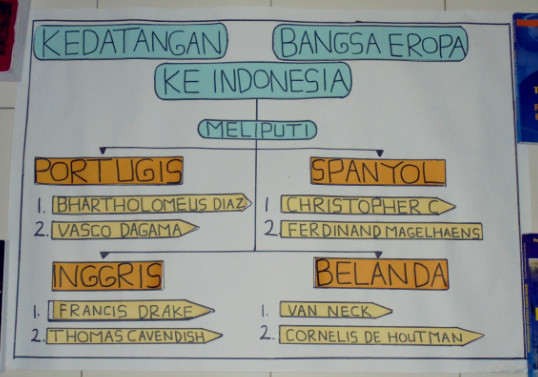 KEDATANGAN BANGSA EROPA
KE INDONESIA
MELIPUTI
PORTUGIS
1. BHARTHOLOMEUS DIAZ
2. VASCO DAGAMA
SPANYOL
1 CHRISTOPHER C
2. FERDINAND MAGELHAENS
INGGRIS
1. FRANCIS DRAKE
2. THOMAS CAVENDISH
BELANDA
1. VAN NECK
2. CORNELIS DE HOUTMAN